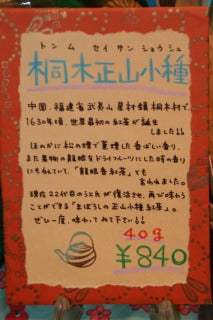 トン ム セイ サン ショウ シュ
桐木正山小種
中国、福建省武夷山 星村鎮 桐木村で、
1630年頃、世界最初の紅茶が誕生
しました!!
ほのかに松の煙で薫煙した香ばしい香り、
また果物の龍眼をドライフルーツにした時の香り
にも似ていて、「龍眼香紅茶」とも
言われました。
現在22代目のこうえんが復活させ、再び味わう
ことができる「まぼろしの正山小種紅茶」。
ぜひ一度、味わってみて下さい!!
40g
¥840